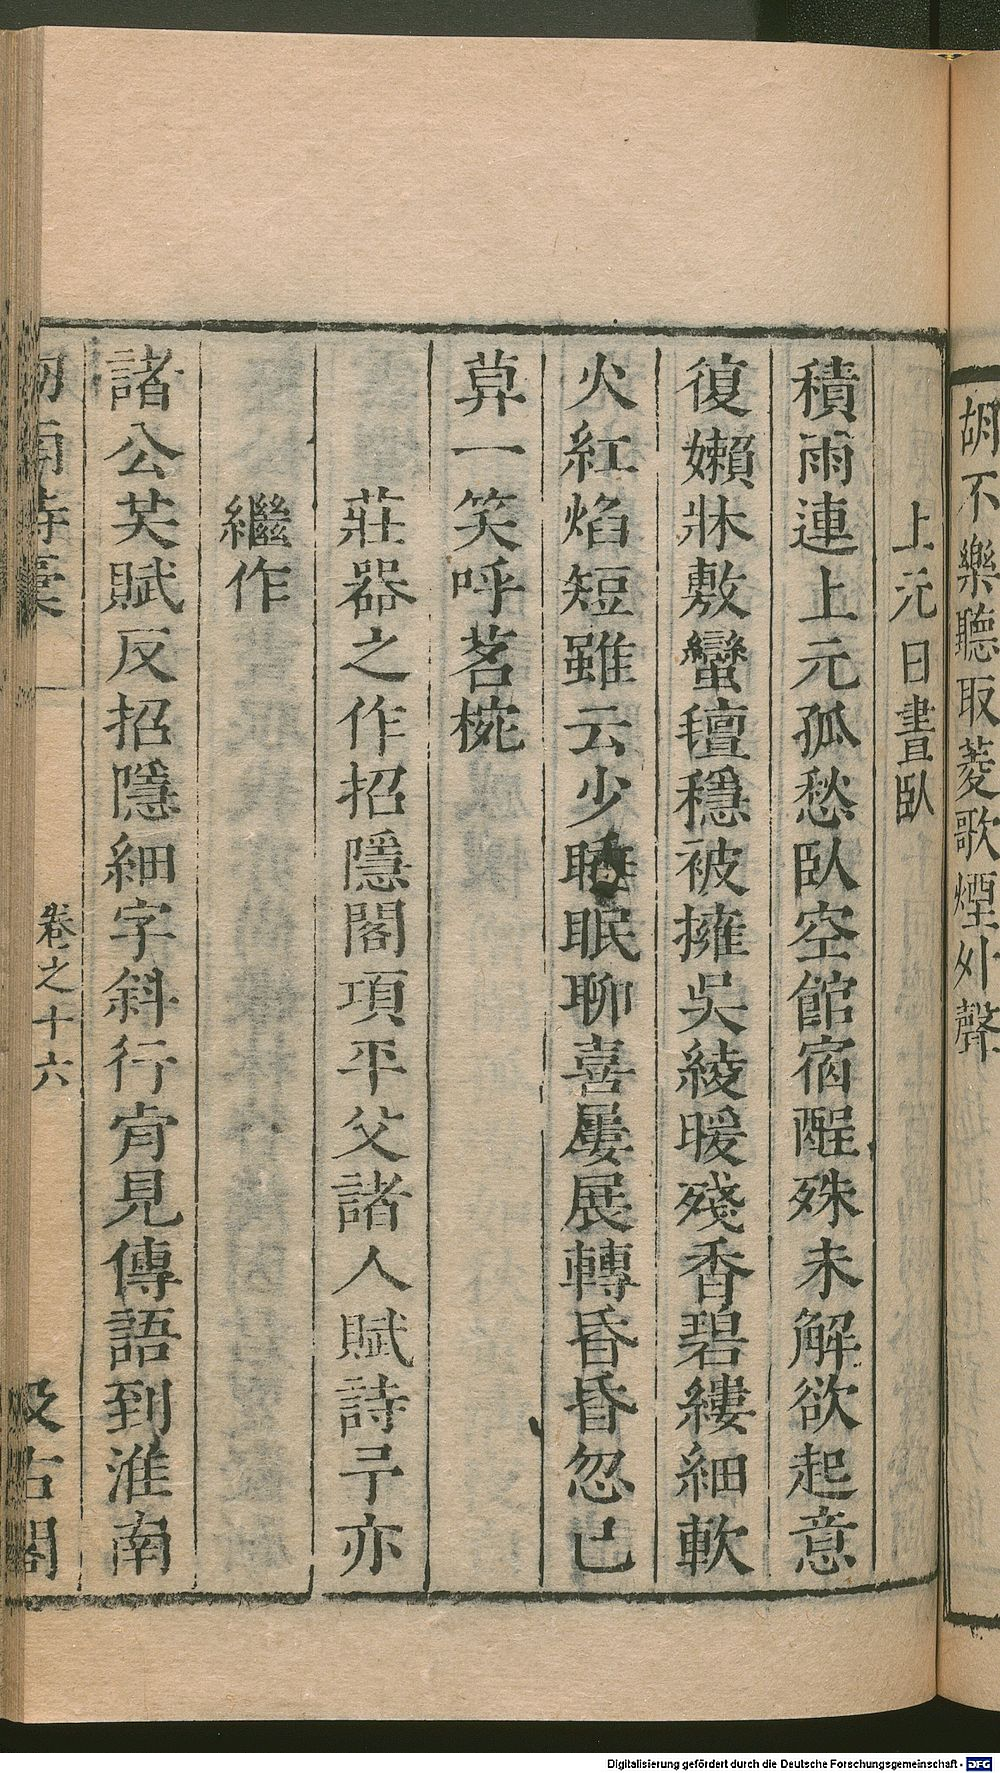 胡不樂聽取菱歌煙外聲
上元日晝臥
積雨連上元孤愁臥空館宿酲殊未解欲起意
復嬾牀敷蠻氊穩被擁吳綾暖殘香碧縷細軟
火紅焰短雖云少睡眠聊喜屢展轉昏昏忽已
莫一笑呼茗椀
莊器之作招隱閣項平父諸人賦詩予亦
繼作
諸公芺賦反招隱細字斜行肯見傳語到淮南
劒南詩稾
卷之十六
汲古閣
Digitalisierung gefördert durch die Deutsche Forschungsgemeinschaft - DFG